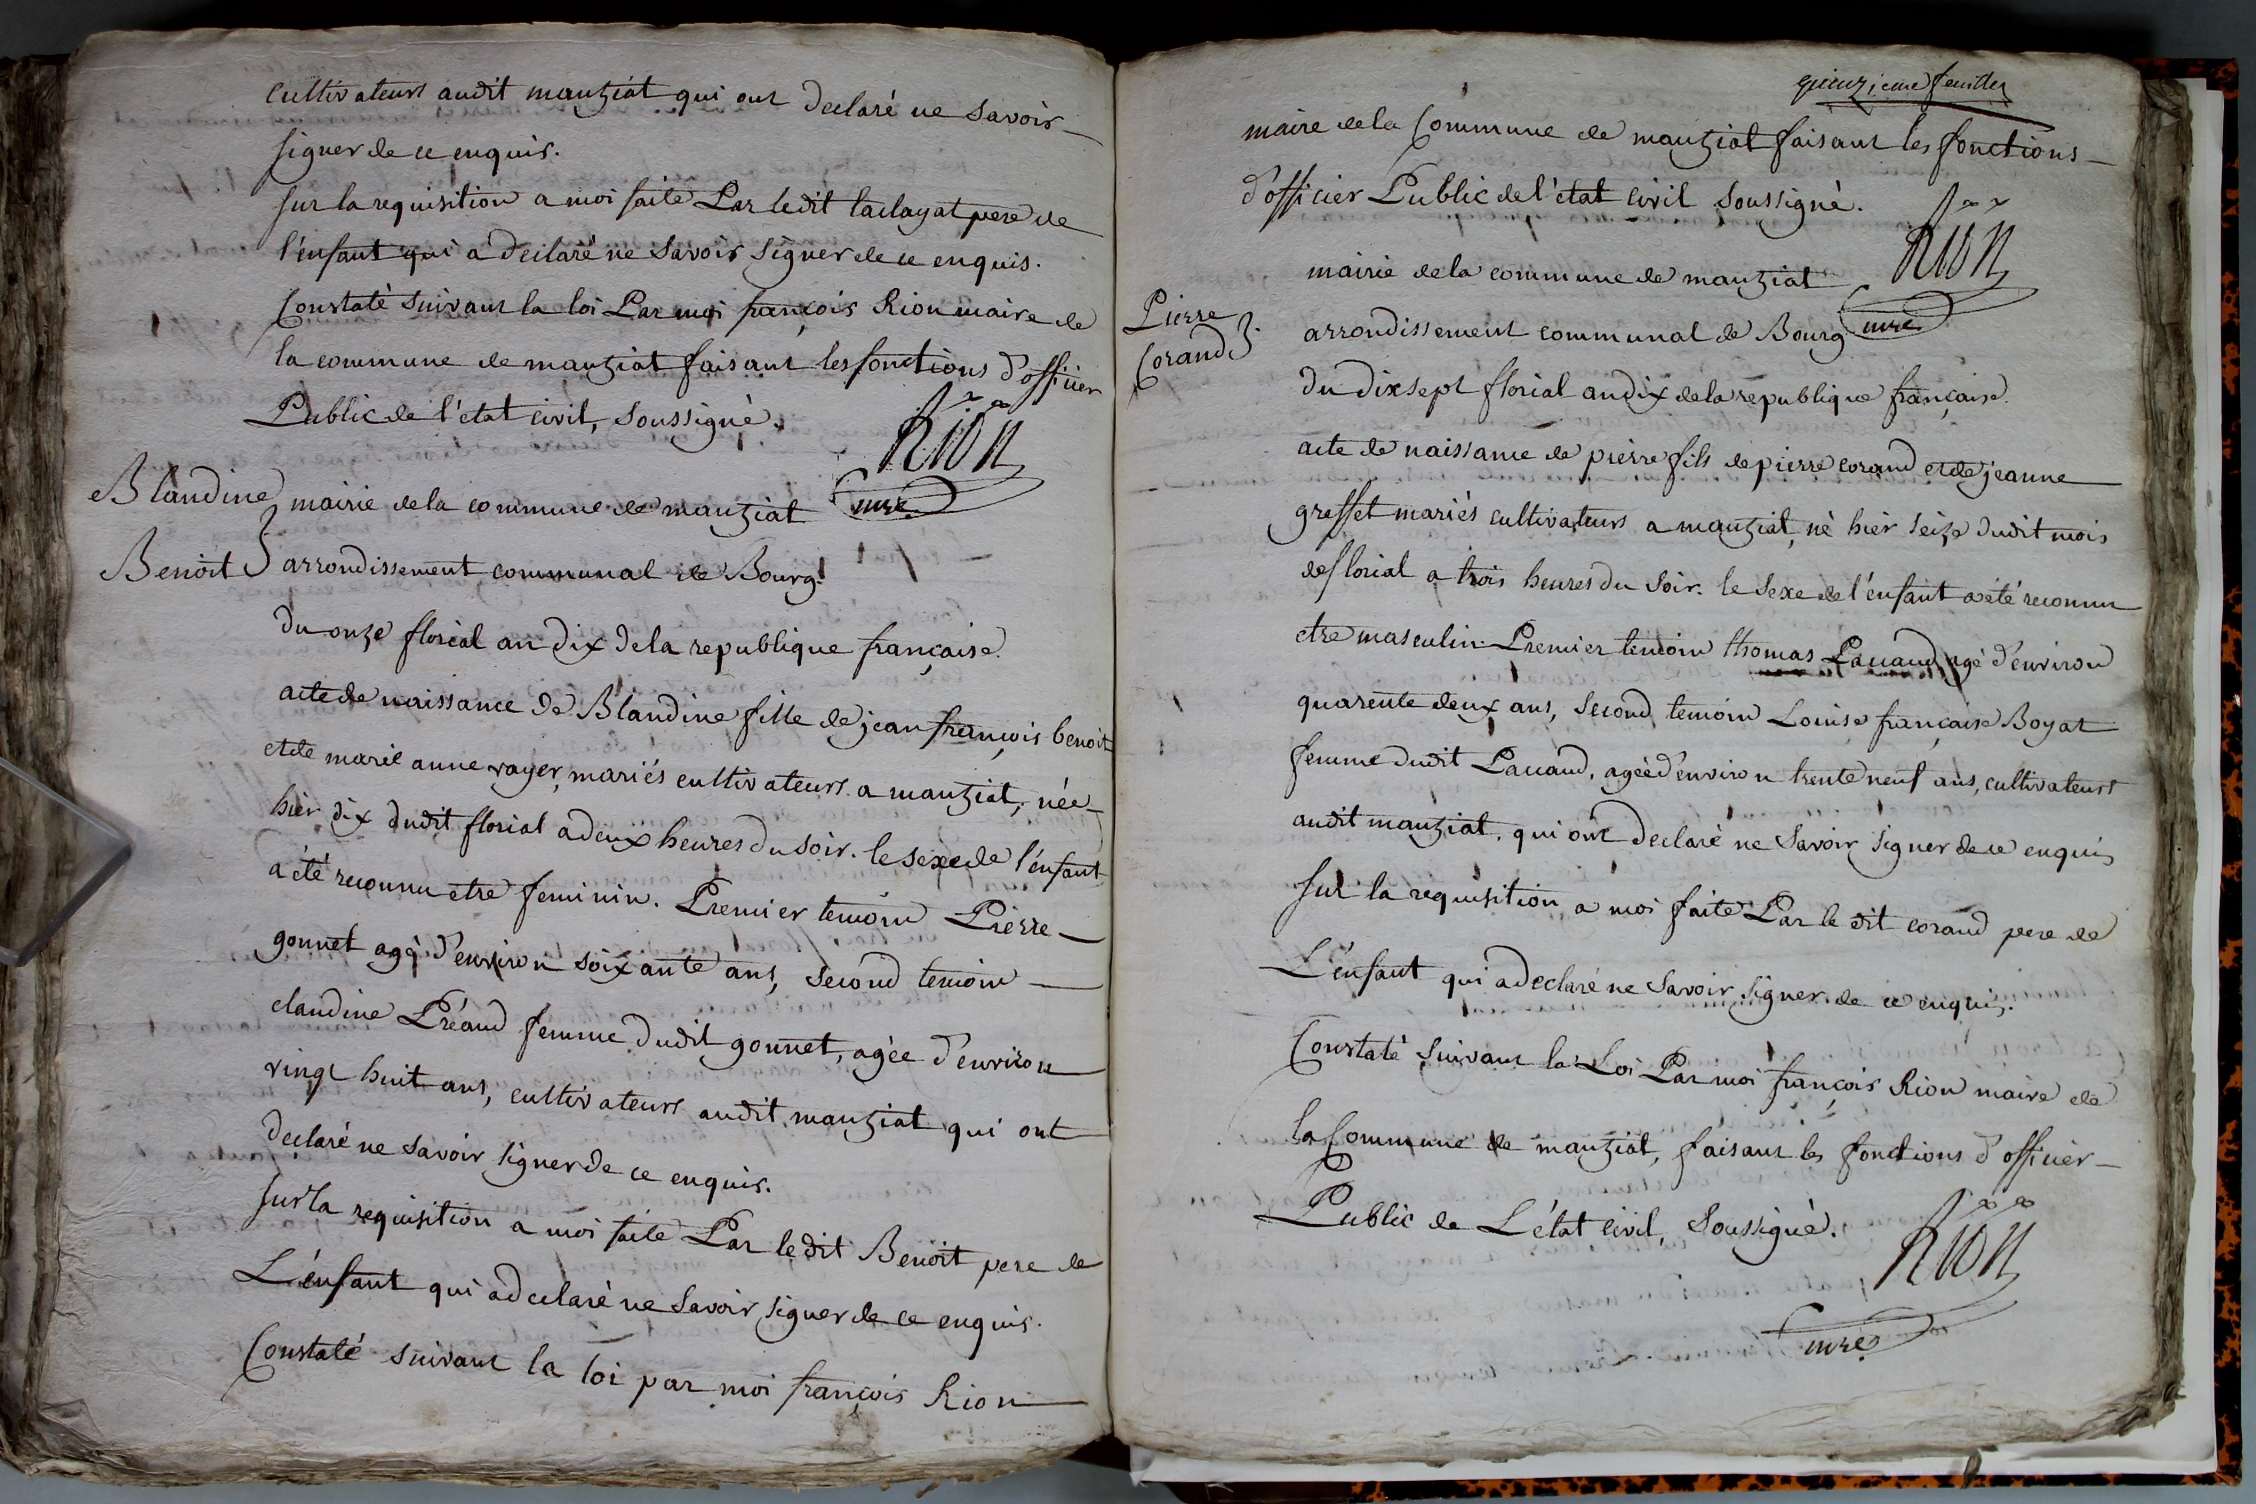 cultivateurs audit mantziat qui ont declaré ne savoir
signer de ce enquis.
sur la requisition a moi faite Par ledit taclayat pere de
l'enfant qui a declaré ne savoir signer de ce enquis.
Constaté suivant la loi Par moi françois Rion maire de
la commune de mantziat faisant les fonctions d'officier
Public de l'état civil, soussigné.
Rion
mre
Blandine
Benoit
mairie de la commune de mantziat
arrondissement communal de Bourg.
du onze floréal an dix de la republique française.
acte de naissance de Blandine fille de jean françois benoit
et de marie anne rayer, mariés cultivateurs a mantziat, née
hier dix dudit florial a deux heures du soir. le sexe de l'enfant
a été reconnu etre feminin. Premier temoin Pierre
gonnet agé d'environ soixante ans, second temoin
claudine Préaud femme dudit gonnet, agée d'environ
vingt huit ans, cultivateurs audit mantziat qui ont
declaré ne savoir signer de ce enquis.
sur la requisition a moi faite Par ledit Benoit pere de
L'enfant qui a declaré ne savoir signer de ce enquis.
Constaté suivant la loi par moi françois Rion
quinzieme feuillet
maire de la Commune de mantziat faisant les fonctions
d'officier Public de l'état civil soussigné.
Rion
mre
Pierre
Corand
mairie de la commune de mantziat
arrondissement communal de Bourg
du dix sept florial an dix de la republique française.
acte de naissance de pierre fils de pierre corand et de jeanne
greffet mariés cultivateurs a mantziat, né hier seize dudit mois
de florial a trois heures du soir. le sexe de l'enfant a été reconnu
etre masculin. Premier temoin thomas Pauaud agé d'environ
quarente deux ans, second temoin Louise française Boyat
femme dudit Pauaud, agée d'environ trente neuf ans, cultivateurs
audit mantziat, qui ont declaré ne savoir signer de ce enquis
sur la requisition a moi faite Par le dit corand pere de
L'enfant qui a declaré ne savoir signer de ce enquis.
Constaté suivant la Loi Par moi françois Rion maire de
la Commune de mantziat, faisant les fonctions d'officier
Public de L'état civil, soussigné.
Rion
mre